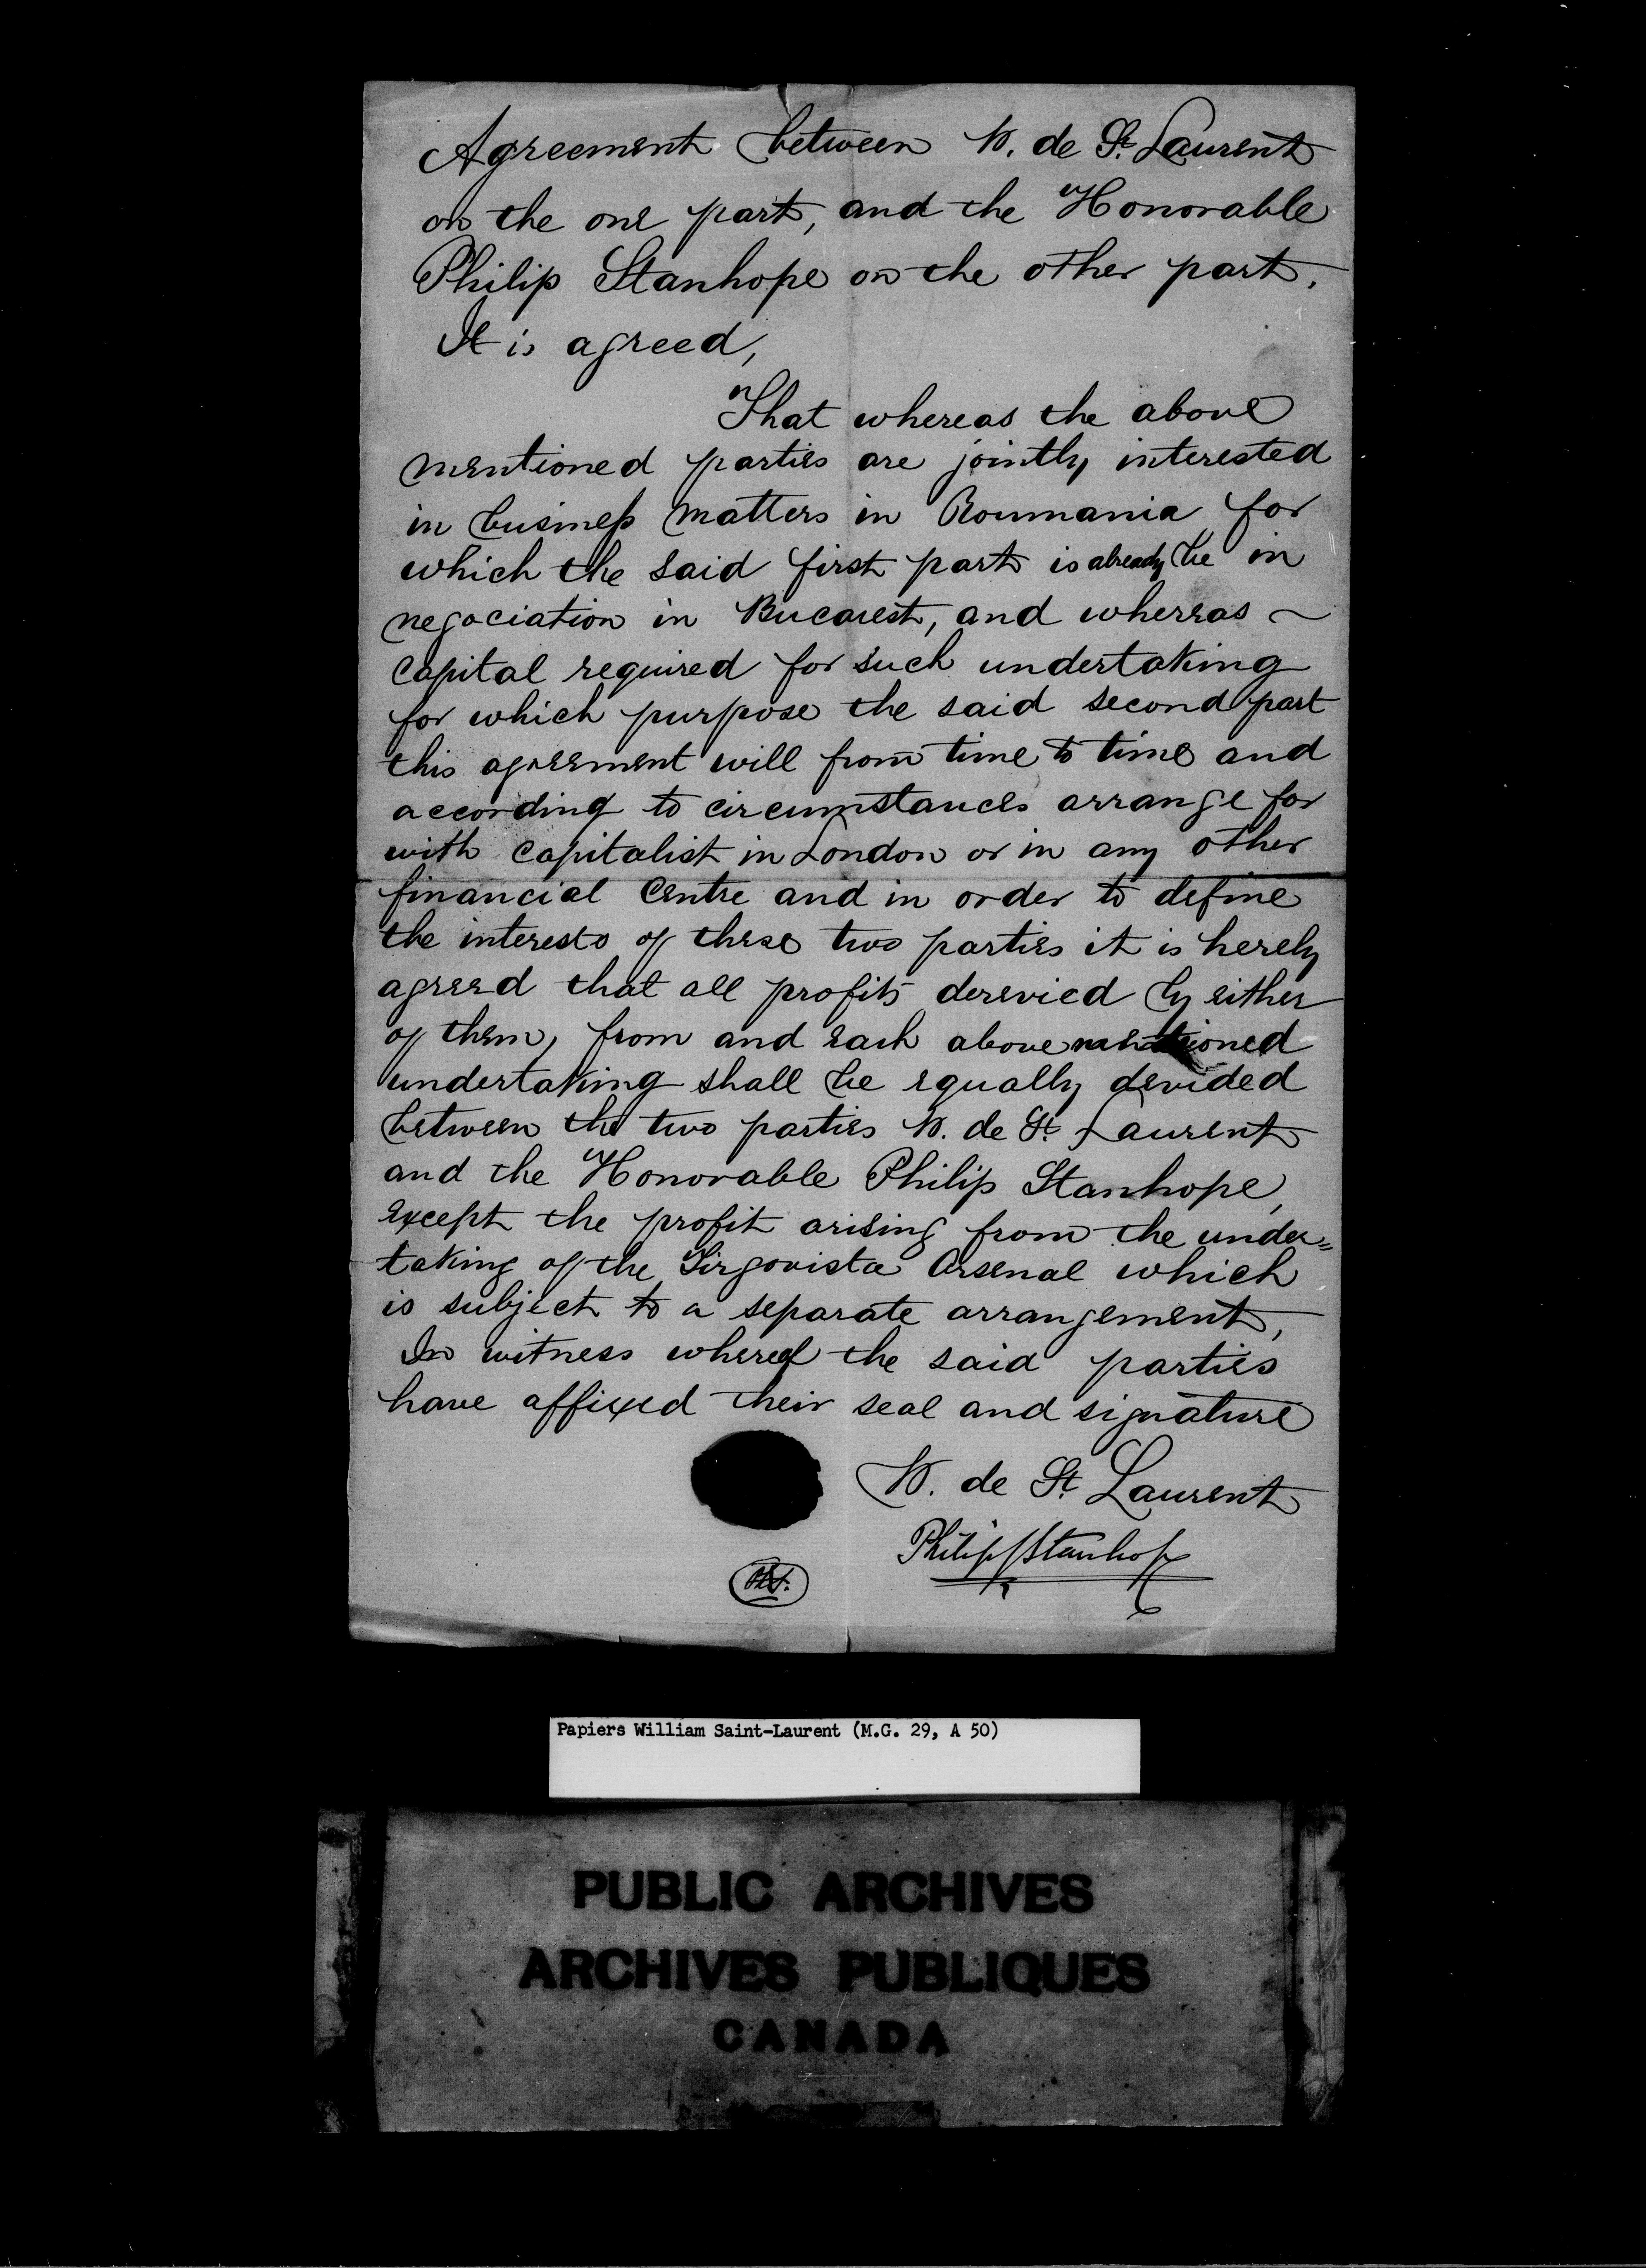 Agreement between W. de St. Laurent
on the one part, and the Honorable
Philip Stanhope on the other part.
It is agreed,
That whereas the above
mentioned parties are jointly interested
in business matters in Roumania for
which the said first part is already be in
negociation in Bucarest, and whereas ~
Capital required for such undertaking
for which purpose the said second part
this agreement will from time to time and
according to circumstances arrange for
with capitalist in London or in any other
financial Centre and in order to define
the interests of these two parties it is hereby
agreed that all profits derevied by either
of them, from and each above mentioned
undertaking shall be equally devided
between the two parties W. de St. Laurent
and the Honorable Philip Stanhope,
except the profit arising from the under=
taking of the Tirgovista Arsenal which
is subject to a separate arrangement,
In witness whereof the said parties
have affixed their seal and signature
W. de St. Laurent
Philip Stanhope
Papiers William Saint-Laurent (M.G. 29, A 50)
PUBLIC ARCHIVES
ARCHIVES PUBLIQUES
CANADA